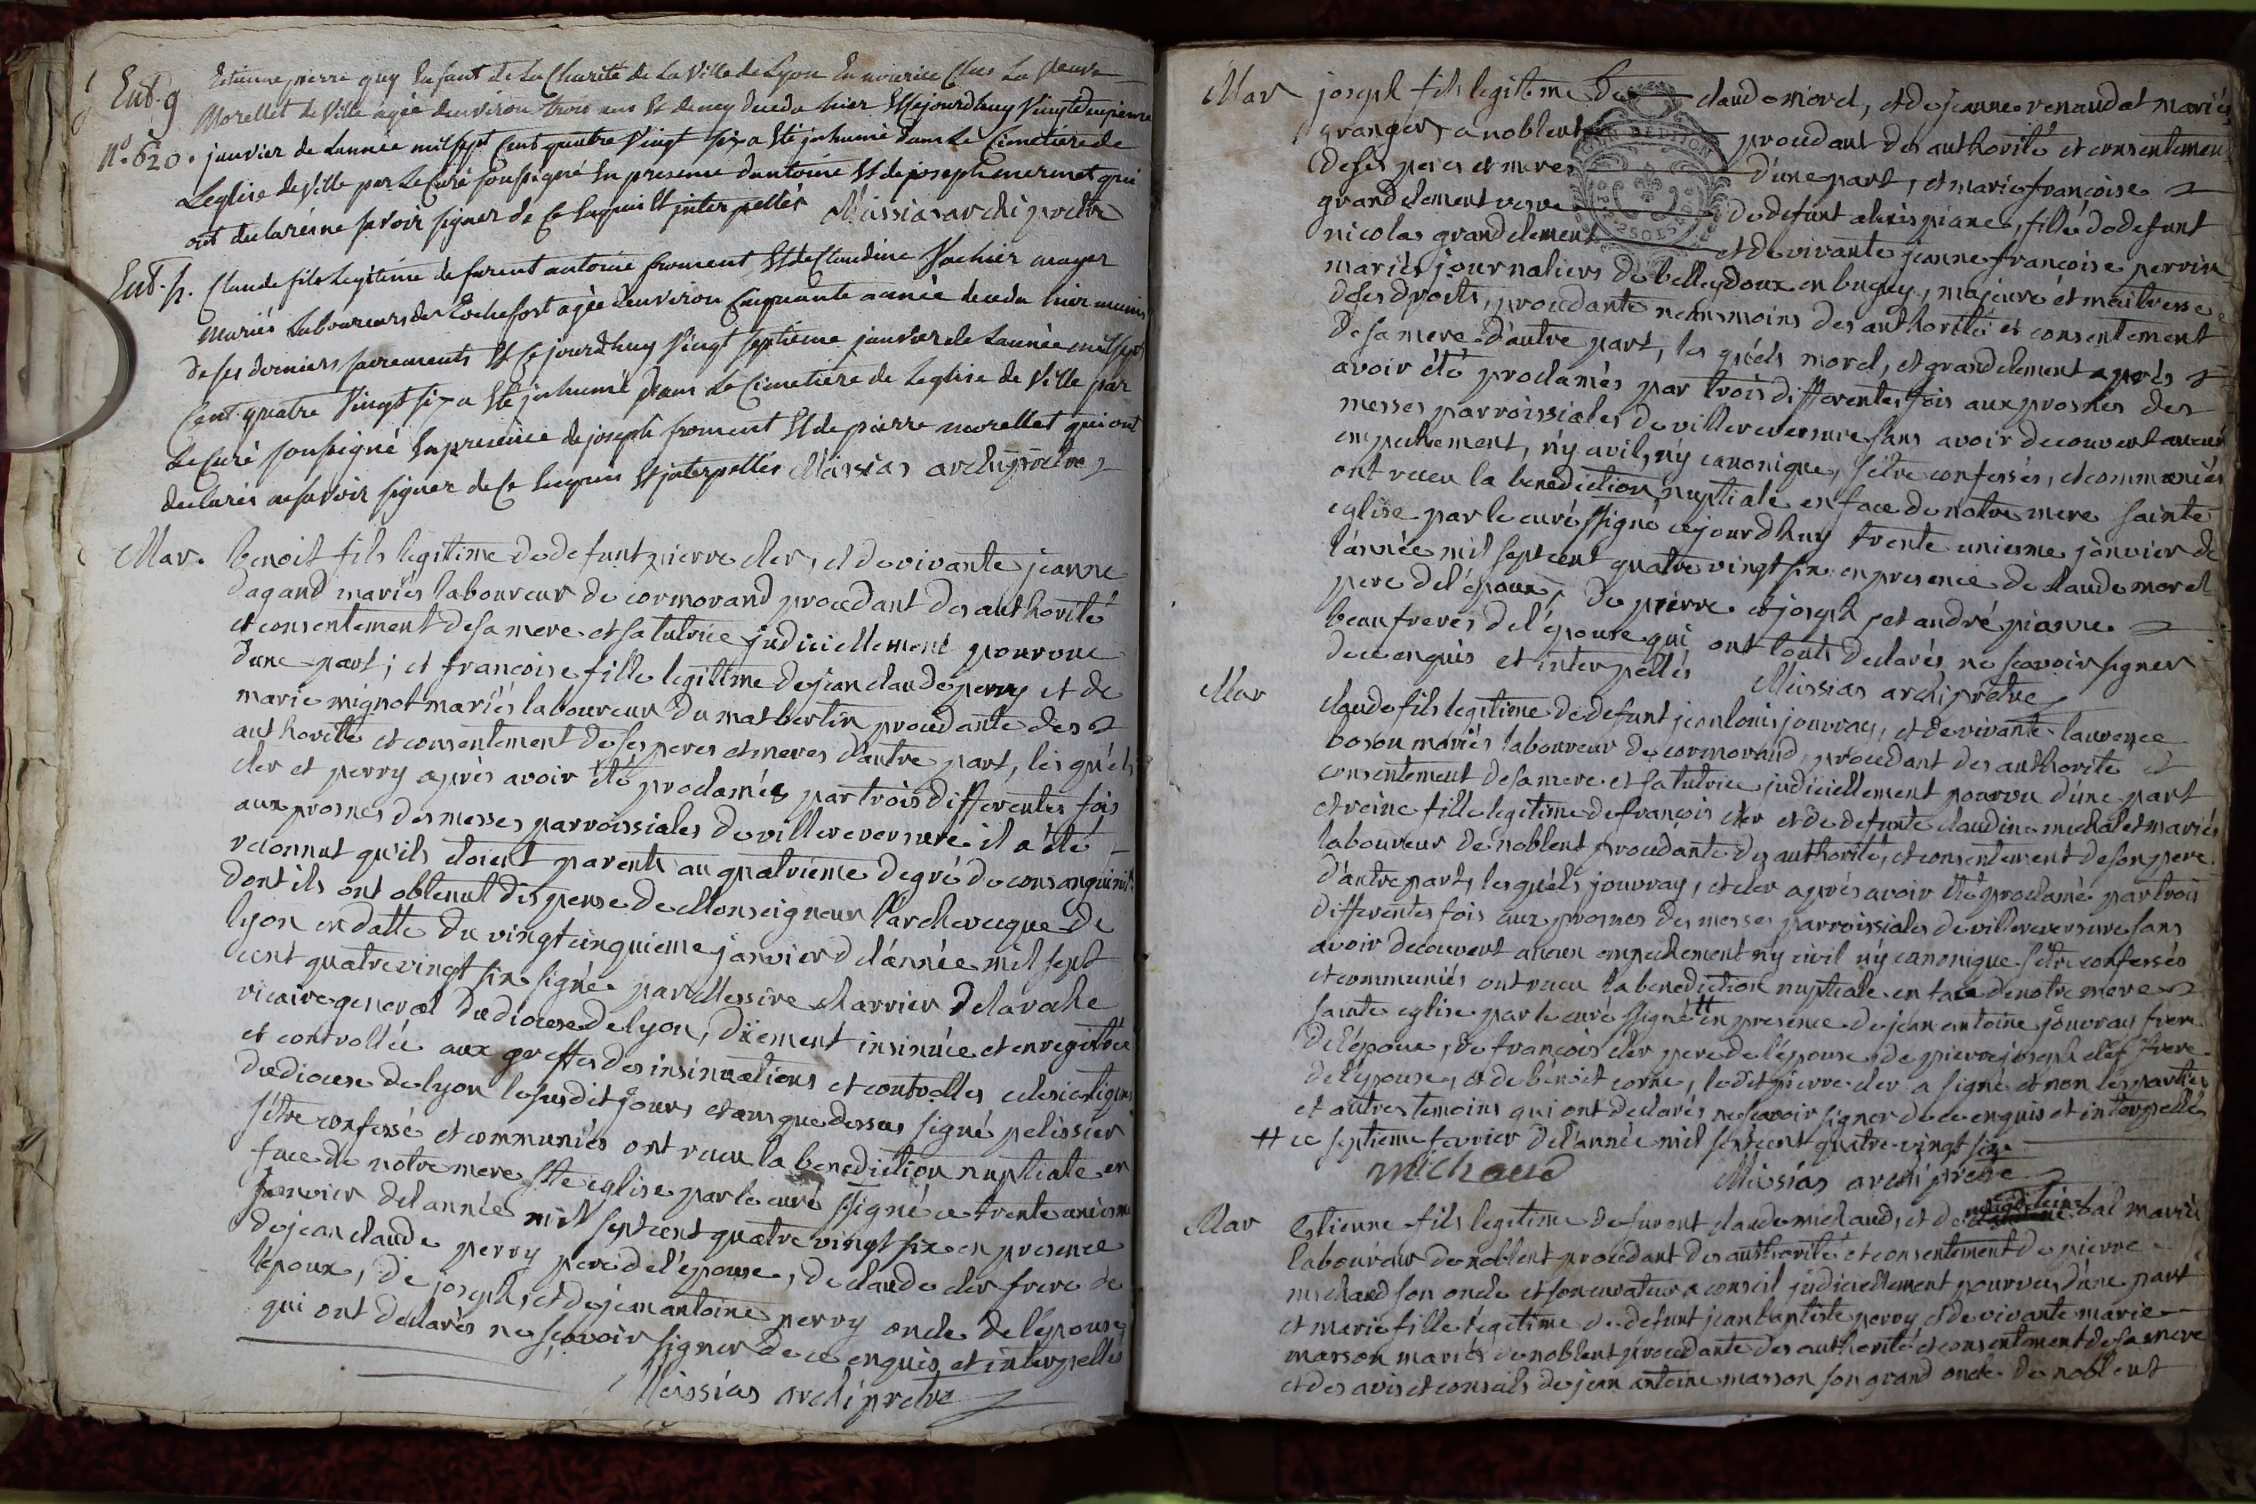 Ent. g
Etienne pierre guy Enfant de La Charité de La Ville de Lyon En nourice Chés La veuve
Morellet de Ville agée d'environ trois ans Et demy decedu hier Et cejourd'huy Vingt
n°. 620. janvier de Lannée mil sept Cent quatre Vingt six a Eté jnhumé dans Le Cimetiere de
L'eglise de Ville par Le Curé soussigné En presence d'antoine Et de joseph mermet qui
ont declarés ne savoir signer de Ce Enquis Et jnterpellés Missias archiprêtre
Ent. h. Claude fils Legitime de furent antoine froment Et de Claudine Vachier
Mariés Laboureurs de Rochefort agée d'environ Cinquante année decedu hier muni
de ses derniers sacrements Et Cejourd'huy Vingt septieme janvier de Lannée mil sept
Cent quatre Vingt six a Eté jnhumé dans Le Cimetiere de Leglise de Ville par
Le Curé soussigné En presence de joseph froment Et de pierre morellet qui ont
declarés ne savoir signer de Ce Enquis Et jnterpellés Missias archiprêtre
Mar. benoit fils legitime de defunt pierre cler, et de vivante jeanne
dagand mariés laboureur de cormorand procedant des authorité
et consentement de sa mere et sa tutrice judiciellement pourvue
d'une part; et francoise fille legitime de jean claude perry et de
marie mignot mariés laboureur du mas bertin procedante des
authorité et consentement de ses peres et meres d'autre part, les quéls
cler et perry après avoir été proclamés par trois differentes fois
aux prosnes des messes parroissiales de villereversure il a été
reconnut qu'ils etoient parents au quatrieme degré de consanguinité
dont ils ont obtenut dispense de Monseigneur l'archeveque de
lyon en datte du vingt cinquieme janvier de l'année mil sept
cent quatre vingt six signée par Messire charrier de la roche
vicaire general du diocese de lyon, düement insinuée et enregistrée
et controllée aux greffes des insinuations et controlles
du diocese de lyon le susdit jour, et ans que dessus signé pelissier
s'être confessé et communiés ont recu la benediction nuptiale en
face de notre mere Ste eglise par le curé ssigné ce trente unieme
janvier de l'année mil sept cent quatre vingt six en presence
de jean claude perry pere de l'épouse, de claude cler frere de
l'époux, de joseph, et de jean antoine perry oncle de l'épouse
qui ont declarés ne sçavoir signer de ce enquis et interpellés
Missias archiprêtre
Mar joseph fils legitime de claude morel, et de jeanne renaudat mariés
grangers a noblent procedant des authorité et consentement
de ses peres et meres d'une part, et marie françoise
grandclement veuve de defunt alexis piane, fille de defunt
nicolas grandclement et de vivante jeanne francoise perrin
mariés journaliers de belleydoux en bugey, majeure et maitresse
de ses droits, procedante neansmoins des authorité et consentement
de sa mere d'autre part, les quéels morel, et grandclement après
avoir été proclamés par trois differentes fois aux prosnes des
messes parroissiales de villereversure sans avoir decouvert aucun
empechement, ny civil, ny canonique, s'être confessés, et communiés
ont recu la benediction nuptiale en face de notre mere sainte
eglise par le curé ssigné cejourd'huy trente unieme jànvier de
l'année mil sept cent quatre vingt six en presence de claude morel
pere de l'époux, de pierre et joseph, et andré pianne
beaufreres de l'épouse qui ont touts declarés ne sçavoir signer
de ce enquis et interpellés Missias archiprêtre
Mar claude fils legitime de defunt jean louis jouvray, et de vivante laurence
boson mariés laboureur de cormorand, procedant des authorité et
consentement de sa mere et sa tutrice judiciellement pourvu d'une part
et reine fille legitime de françois cler et de defunte claudine michalet mariés
laboureur de noblent procedante des authorité, et consentement de son pere
d'autre part, les quéls jouvray, et cler après avoir été proclamé par trois
differentes fois aux prosnes des messes parroissiales de villereversure sans
avoir decouvert aucun empechement ny civil ny canonique s'être confessés
et communiés ont recu la benediction nuptiale en face de notre mere
sainte eglise par le curé ssigné # en presence de jean antoine jouvray frere
de l'époux, de françois cler pere de l'épouse, de pierre joseph clef frere
de l'épouse, et de benoit corne, le dit pierre cler a signé et non les parties
et autres temoins qui ont declarés ne sçavoir signer de ce enquis et interpellés
# ce septieme fevrier de l'année mil sept cent quatre vingt six
michaud Missias archiprêtre
Mar Estienne fils legitime de furent claude michaud, et de bal mariés
laboureur de noblent procedant des authorité et consentement de pierre
michaud son oncle et son curateur a conseil judiciellement pourveu d'une part
et marie fille légitime de defunt jean baptiste perry, et de vivante marie
marson mariés de noblent procedante des authorité et consentement de sa mere
et des avis et conseils de jean antoine marson son grand oncle de noblent